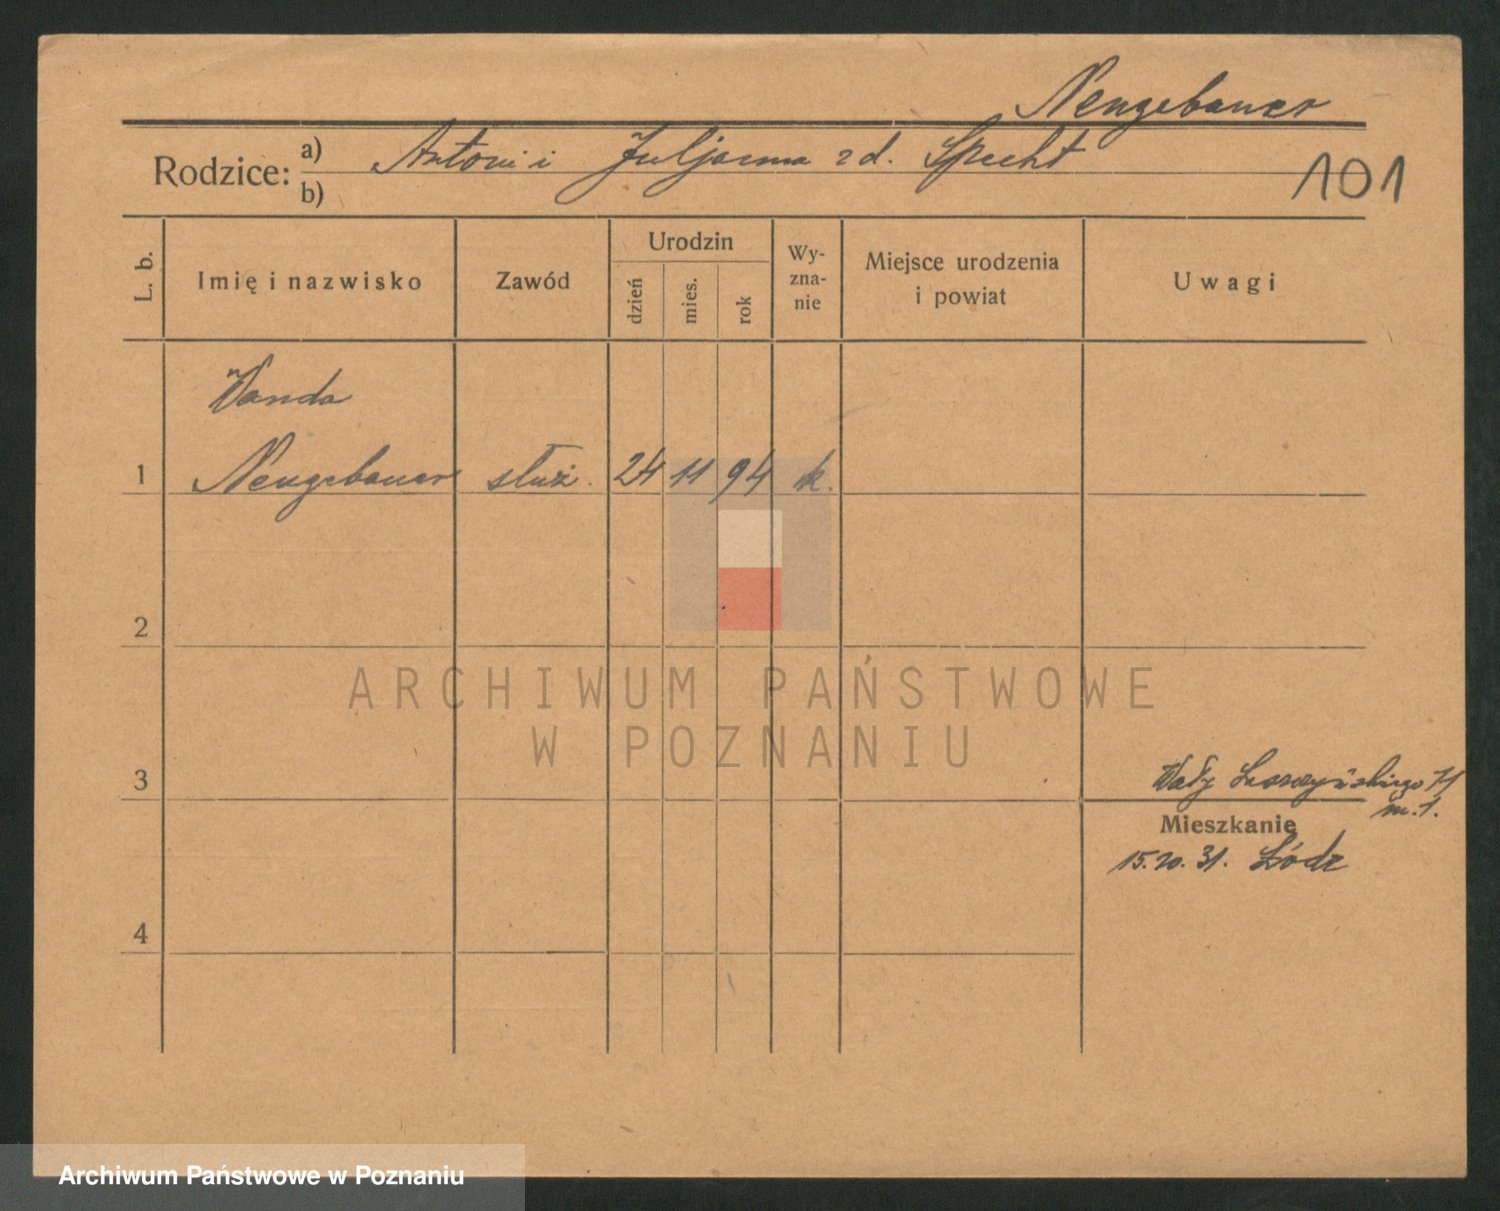 Neugebauer
Rodzice: a) Antoni i Juljanna z d. Specht
b)
101
L. b.
Imię i nazwisko
Zawód
Urodzin
dzień
mies.
rok
Wy-
zna-
nie
Miejsce urodzenia
i powiat
Uwagi
Wanda
1 Neugebauer służ. 24 11 94 k.
2
ARCHIWUM PAŃSTWOWE
W POZNANIU
3
Wały
m. 1.
Mieszkanie
31. Łódź
4
Archiwum Państwowe w Poznaniu